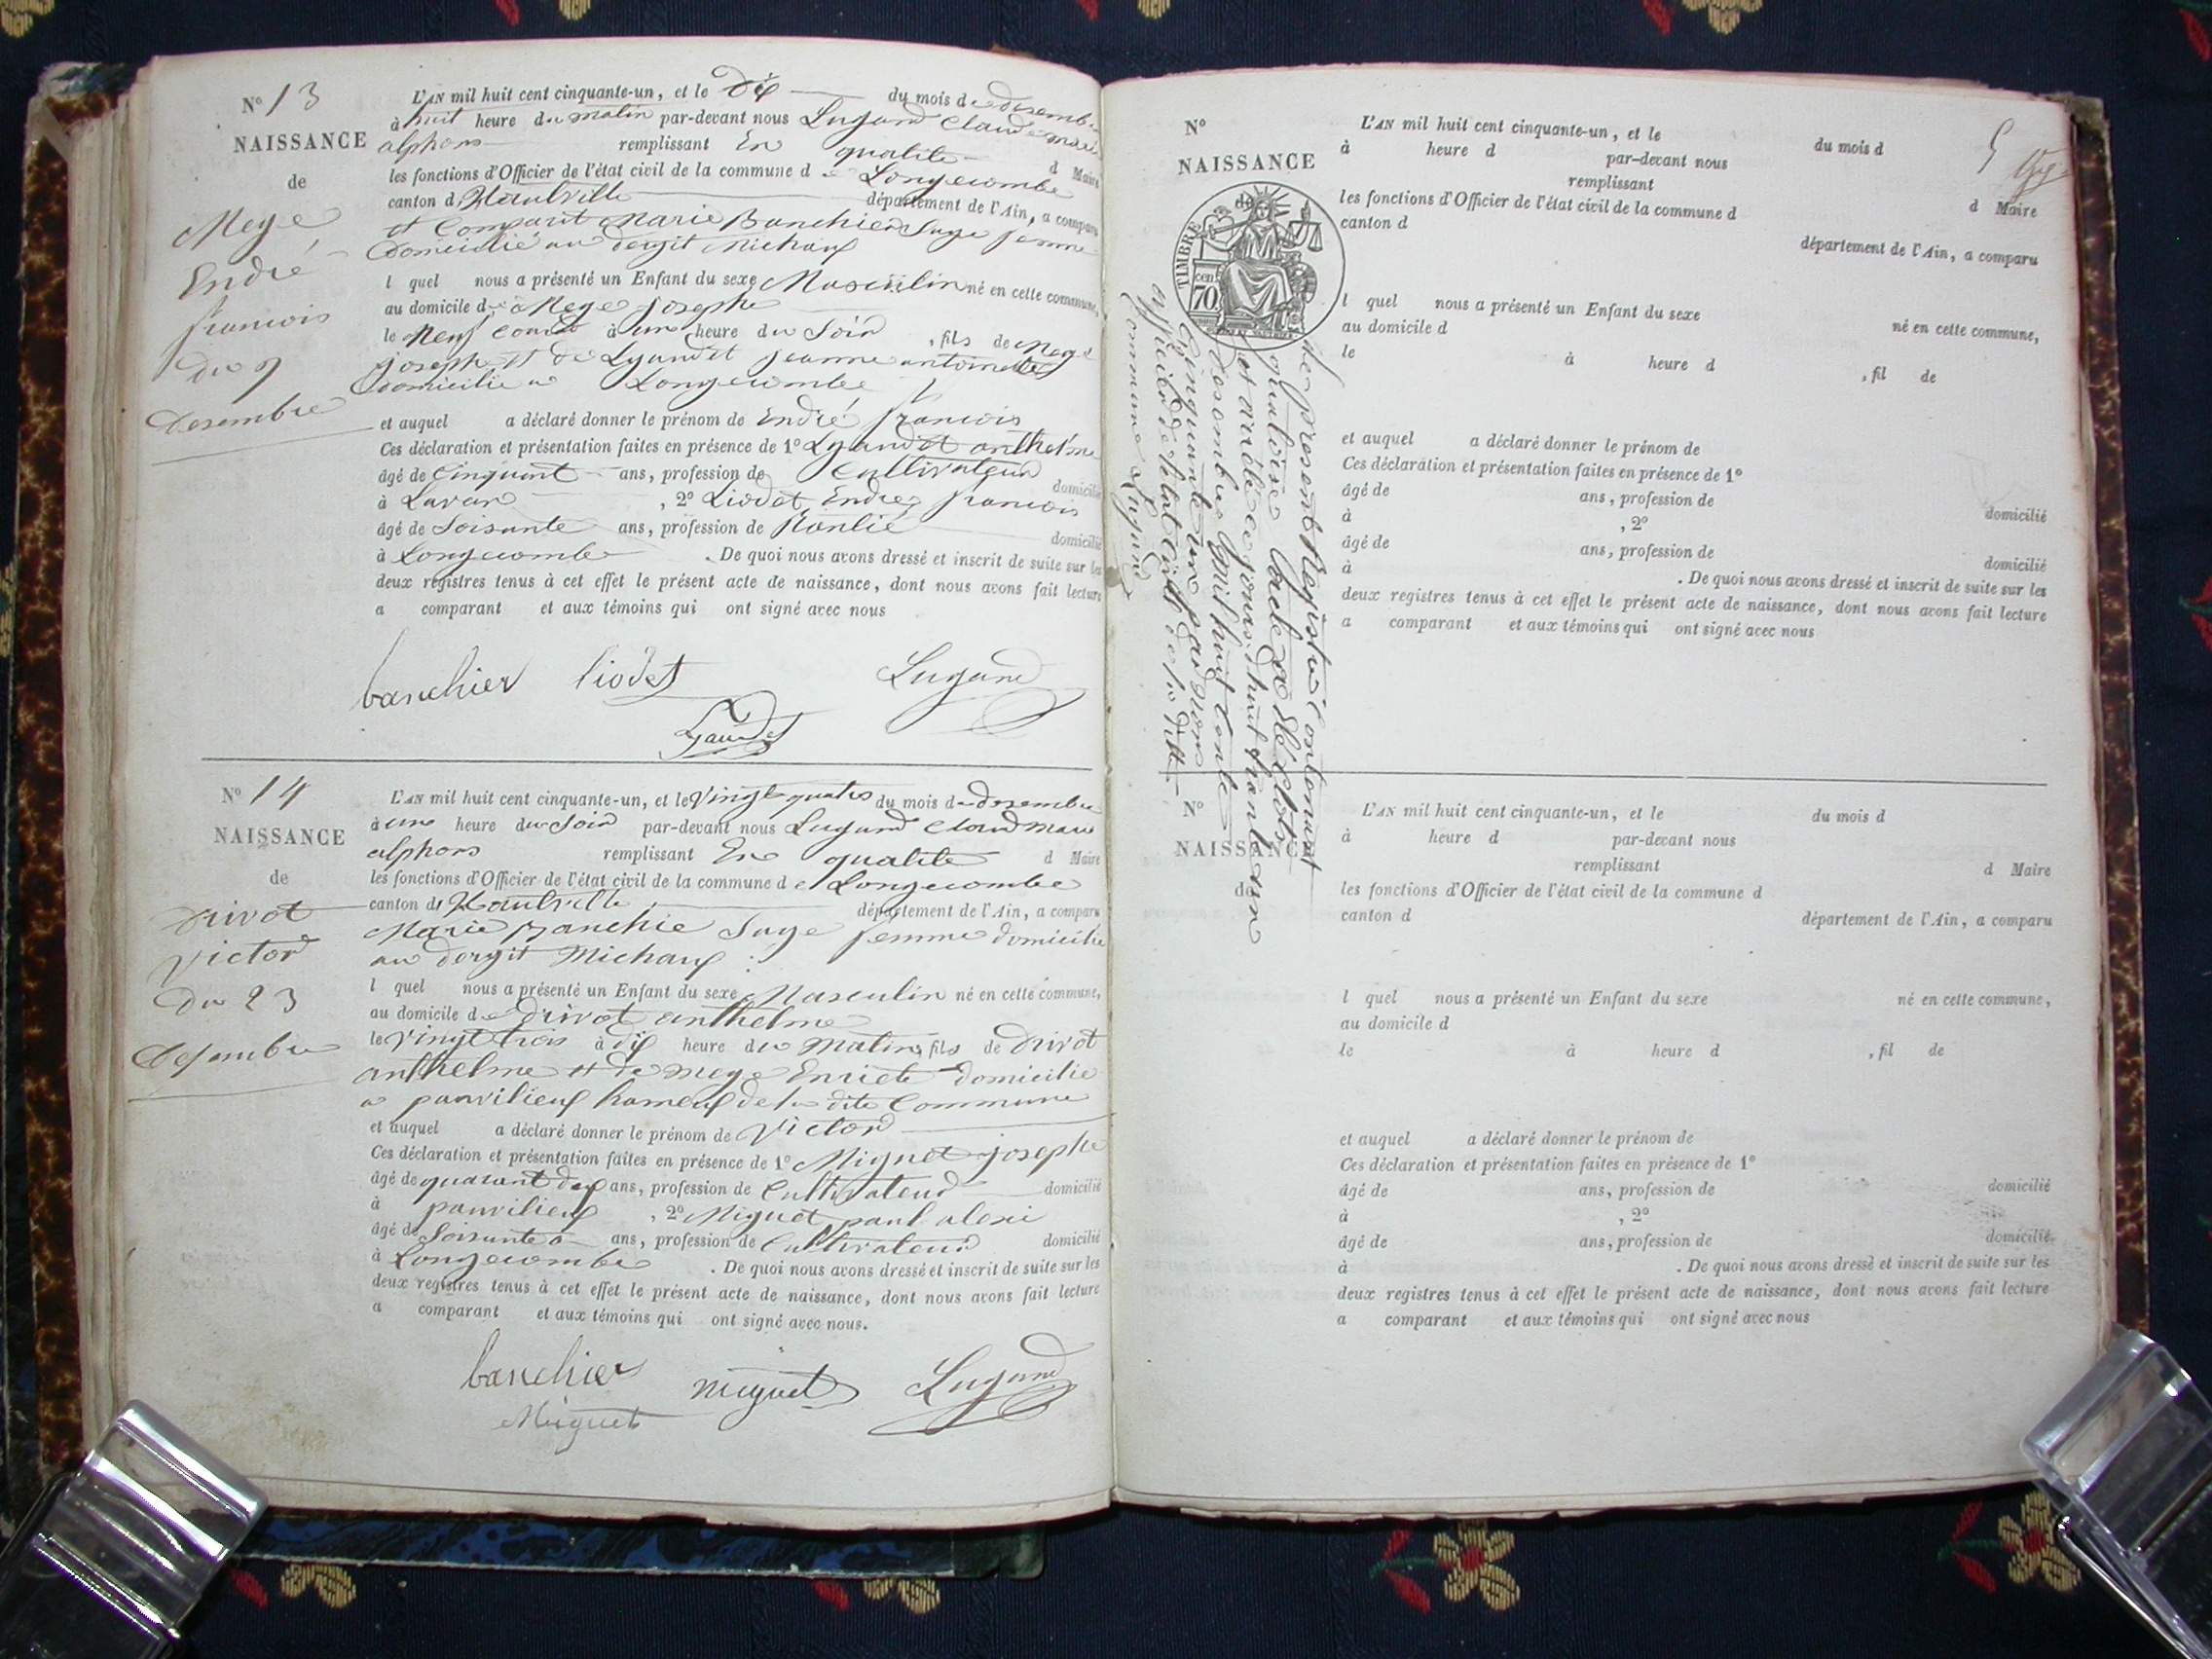 N° 13
NAISSANCE
de
Mege
Endré
francois
du 9
desembre
L'AN mil huit cent cinquante-un, et le dix du mois de desembre
à huit heure du matin par-devant nous Lugand Claude marie
alphons remplissant En qualite d Maire
les fonctions d'Officier de l'état civil de la commune de Longecombe
canton d Hautville département de l'Ain, a comparu
et Comparut Marie Banchier Sage femme
domicilié au dergit Michaux
l quel nous a présenté un Enfant du sexe Masculin né en cette commune,
au domicile de Mege Josephe
le neuf Courant à une heure du Soir, fils de Mege
joseph et de Lyaudet jeanne antoinette
domicilie a Longecombe
et auquel a déclaré donner le prénom de Endré francois
Ces déclaration et présentation faites en présence de 1° Lyaudet anthelme
âgé de Cinquant ans, profession de Cultivateur domicilié
à Lavan , 2° Liodet Endre francois
âgé de Soisante ans, profession de Ranlié domicilié
à Longecombe . De quoi nous avons dressé et inscrit de suite sur les
deux registres tenus à cet effet le présent acte de naissance, dont nous avons fait lecture
a comparant et aux témoins qui ont signé avec nous
banchier liodet Lugand
Lyaudet
N° 14
NAISSANCE
de
Drivot
Victor
du 23
desembre
L'AN mil huit cent cinquante-un, et le Vingt quatre du mois de desembre
à une heure du Soir par-devant nous Lugand Claud Marie
alphons remplissant En qualite d Maire
les fonctions d'Officier de l'état civil de la commune de Longecombe
canton d Hautville département de l'Ain, a comparu
Marie Banchie Sage femme domicilie
au dergit Michaux
l quel nous a présenté un Enfant du sexe Masculin né en cette commune,
au domicile de drivot anthelme
le Vingt trois à dix heure du Matin, fils de Drivot
anthelme et de mege Enriete domicilie
a panvilieux hameux de la dite Commune
et auquel a déclaré donner le prénom de Victor
Ces déclaration et présentation faites en présence de 1° Miguet josephe
âgé de quarant deux ans, profession de Cultivateur domicilié
à panvilieux , 2° Miguet paul alexi
âgé de Soisante ans, profession de Cultivateur domicilié
à Longecombe . De quoi nous avons dressé et inscrit de suite sur les
deux registres tenus à cet effet le présent acte de naissance, dont nous avons fait lecture
a comparant et aux témoins qui ont signé avec nous.
banchier miguet Lugand
Miguet
5
N°
NAISSANCE
de
TIMBRE
70 cen
L'AN mil huit cent cinquante-un, et le du mois d
à heure d par-devant nous
remplissant d Maire
les fonctions d'Officier de l'état civil de la commune d
canton d département de l'Ain, a comparu
l quel nous a présenté un Enfant du sexe né en cette commune,
au domicile d
le à heure d , fil de
et auquel a déclaré donner le prénom de
Ces déclaration et présentation faites en présence de 1°
âgé de ans, profession de domicilié
à , 2°
âgé de ans, profession de domicilié
à . De quoi nous avons dressé et inscrit de suite sur les
deux registres tenus à cet effet le présent acte de naissance, dont nous avons fait lecture
a comparant et aux témoins qui ont signé avec nous
le present Registre Contenant
quatorse acte a été Clots
et arrêté ce jourdhuit trante un
Desembre mil huit cents
Cinquante un par nous
officier de letat civil de la dite
Commune Lugand
N°
NAISSANCE
de
L'AN mil huit cent cinquante-un, et le du mois d
à heure d par-devant nous
remplissant d Maire
les fonctions d'Officier de l'état civil de la commune d
canton d département de l'Ain, a comparu
l quel nous a présenté un Enfant du sexe né en cette commune,
au domicile d
le à heure d , fil de
et auquel a déclaré donner le prénom de
Ces déclaration et présentation faites en présence de 1°
âgé de ans, profession de domicilié
à , 2°
âgé de ans, profession de domicilié
à . De quoi nous avons dressé et inscrit de suite sur les
deux registres tenus à cet effet le présent acte de naissance, dont nous avons fait lecture
a comparant et aux témoins qui ont signé avec nous